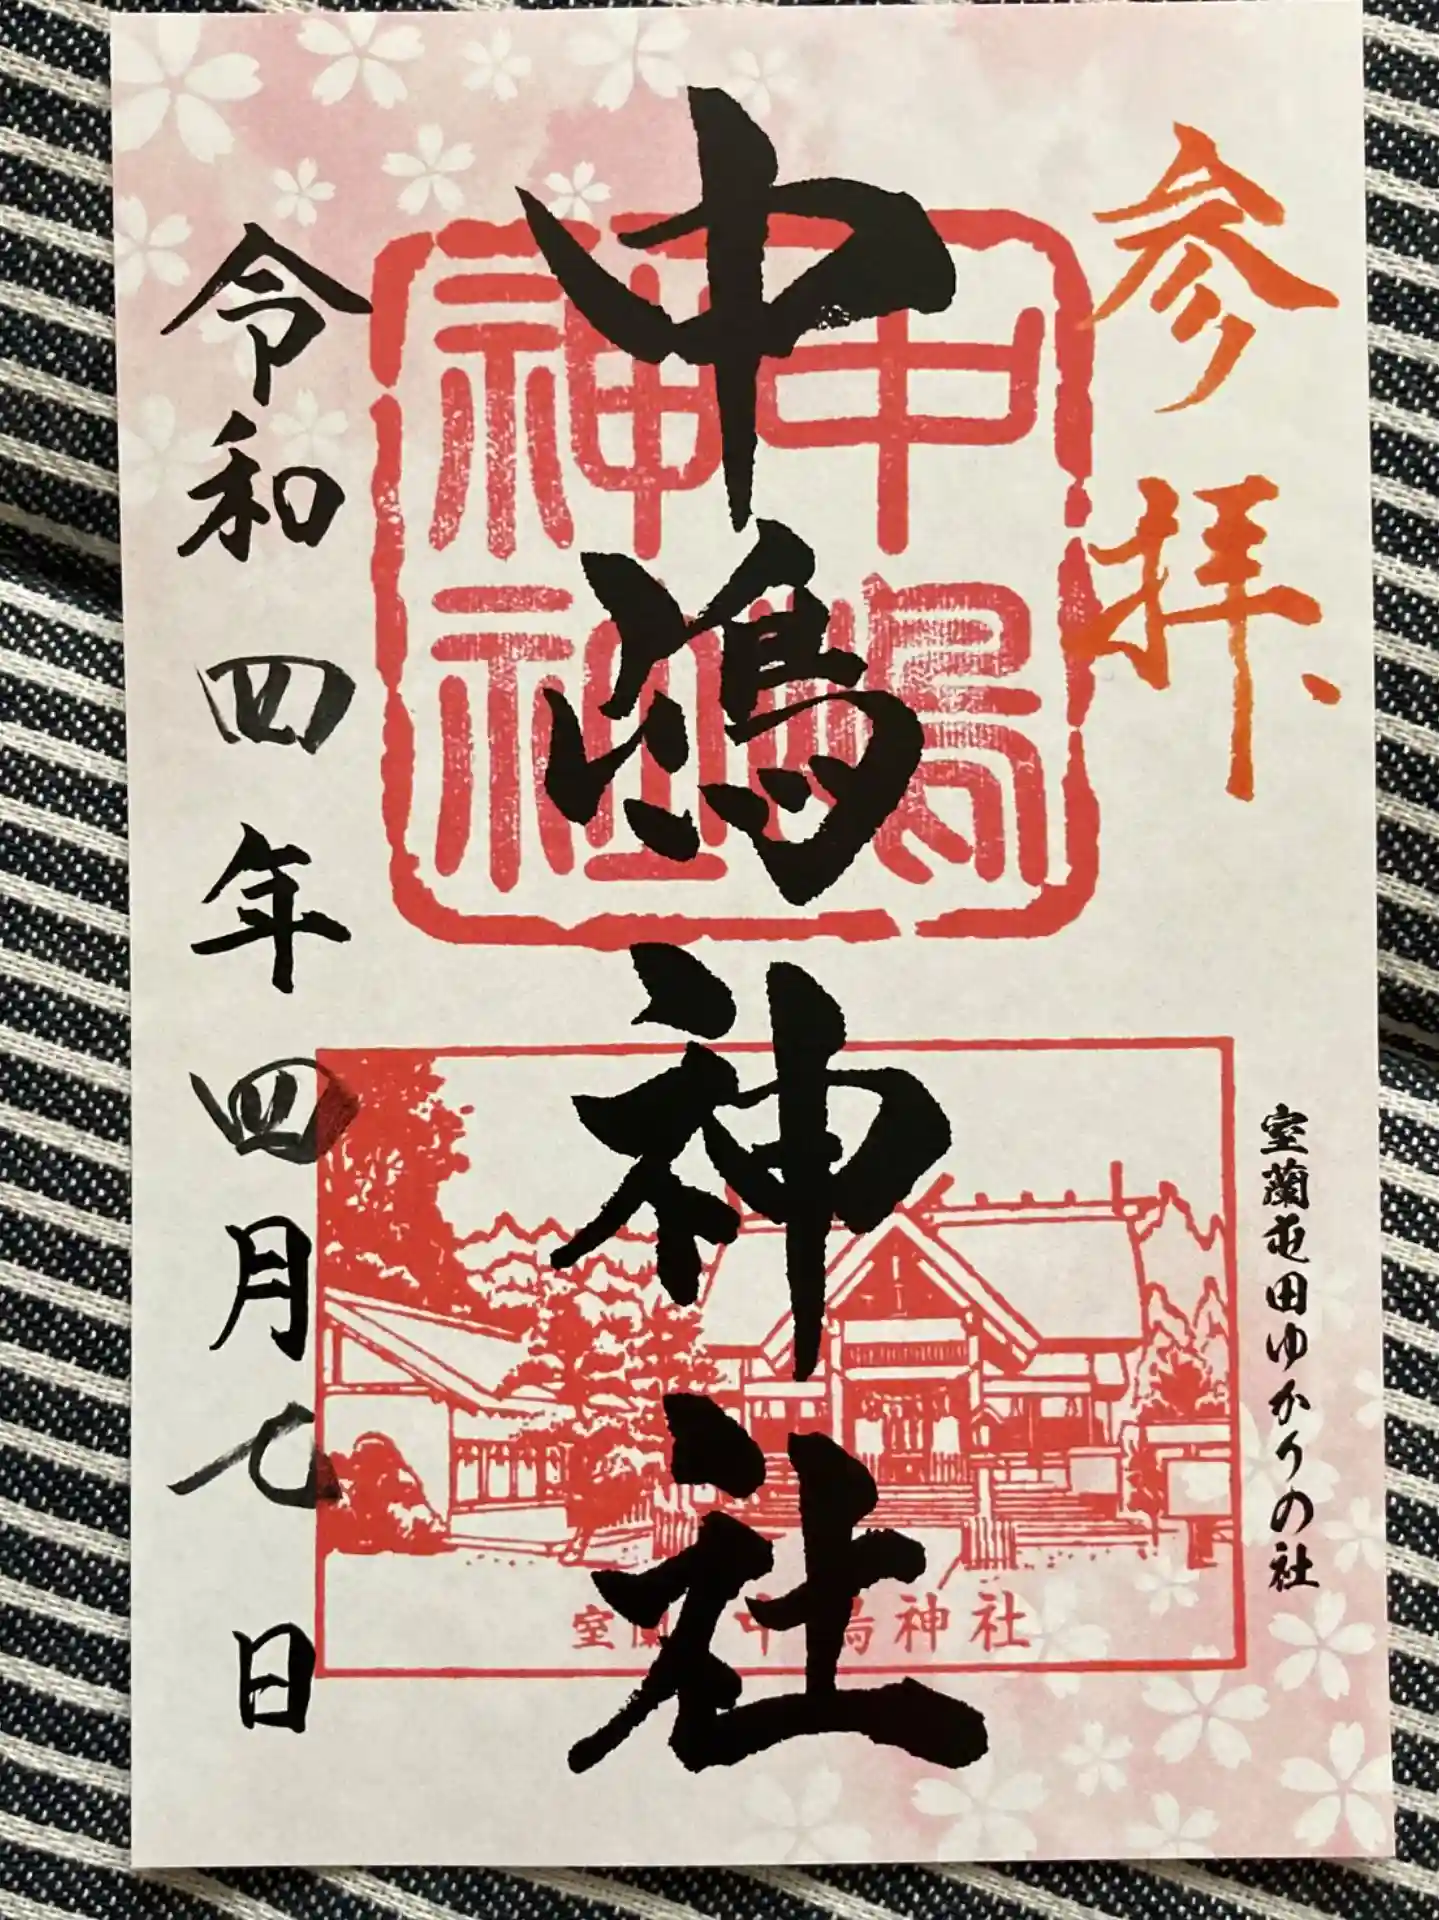 参拝
室蘭屯田ゆかりの社
中嶋神社
中嶋神社
室蘭 中嶋神社
令和四年四月七日